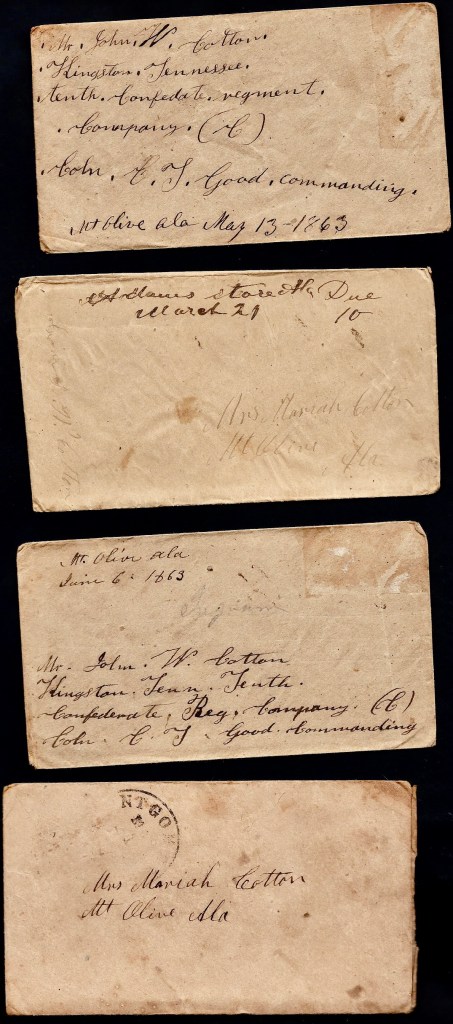 Mr. John. W. Cotton.
Kingston. Tennessee.
tenth. Confedate. regment.
Company. (C)
Coln. C. T. Good. commanding.
Mt Olive Ala May 13-1863
store Due
March 21 10
Mrs Mariah Cotton
Mt Olive Ala
Mt. Olive Ala
June 6. 1863
Mr. John. W. Cotton
Kingston. Tenn. Tenth.
Confederate, Reg, Company. (C)
Coln. C. T. Good. Commanding
NTGO
Mrs Mariah Cotton
Mt Olive Ala